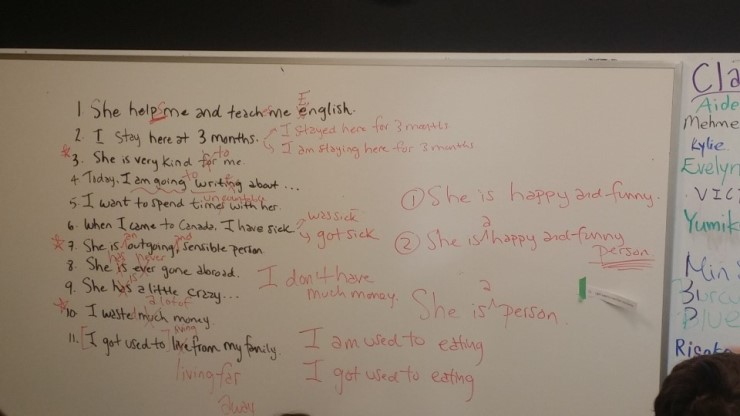 1 She help me and teach me english.
E
2. I stay here at 3 months.
I stayed here for 3 months
I am staying here for 3 months
*3. She is very kind for me.
to
4 Today, I am going writing about ...
to
5 I want to spend times with her.
uncountable
6. When I came to Canada, I have sick
was sick
got sick
*7. She is outgoing, sensible person
an
and
8. She is ever gone abroad.
has never
9. She has a little crazy...
is
*10. I waste much money.
a lot of
11. [I got used to live from my family.
living
living far
away
I don't have
much money.
① She is happy and funny.
② She is a happy and funny
person
She is a person.
I am used to eating
I got used to eating
Cla
Aide
Mehme
Kylie
Evelyn
Vic
Yumik
Min
Blue